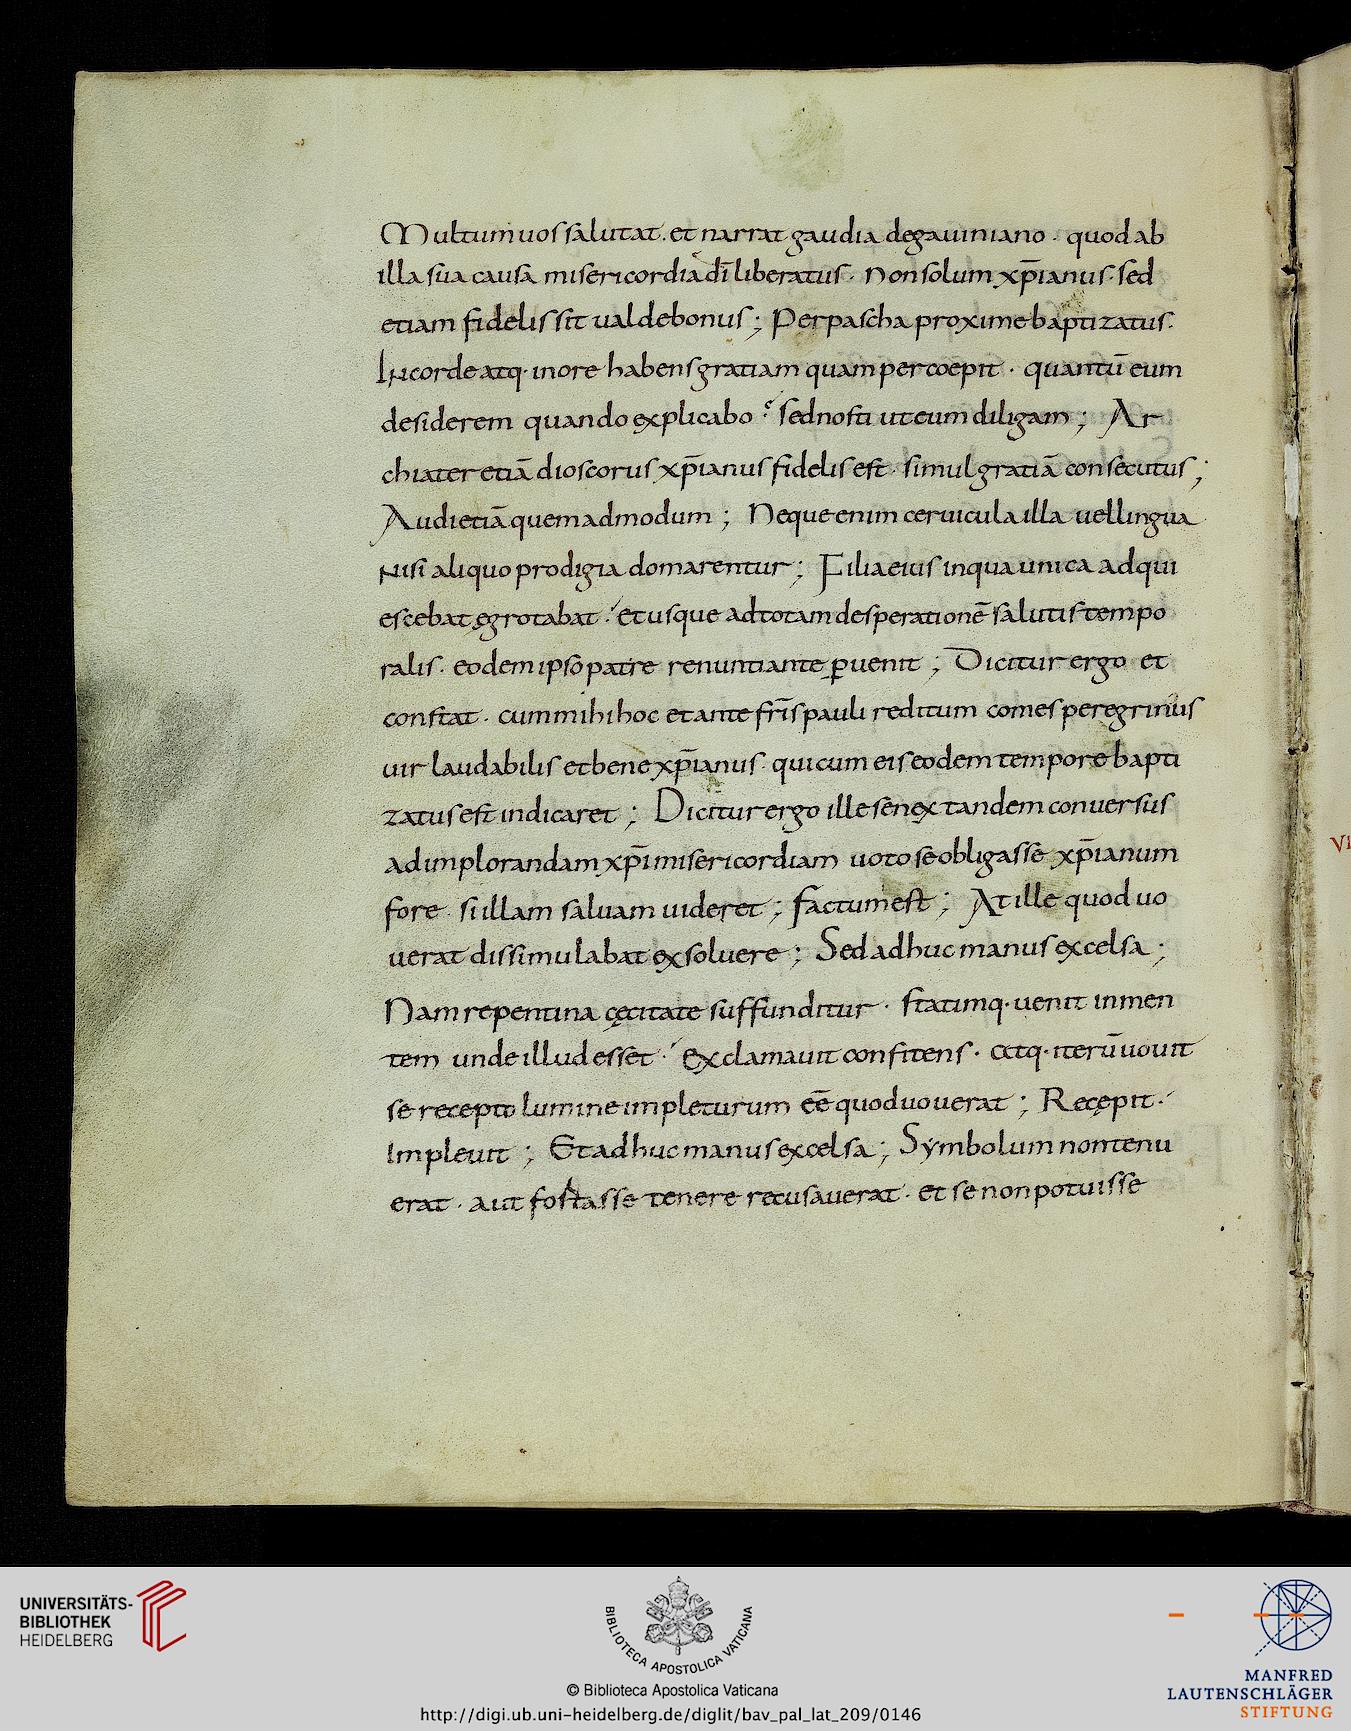 Multum uos salutat. et narrat gaudia de gauiniano · quod ab
illa sua causa misericordia dī liberatus · Non solum xp̄ianus · sed
etiam fidelis sit ualde bonus ; Per pascha proxime baptizatus ·
In corde atq· in ore habens gratiam quam percoepit · quantū eum
desiderem quando explicabo ? sed nosti ut eum diligam ; Ar
chiater etiā dioscorus xp̄ianus fidelis est · simul gratiā consecutus ;
Audi etiā quemadmodum ; Neque enim ceruicula illa uel lingua
Nisi aliquo prodigia domarentur ; Filia eius in qua unica adqui
escebat ęgrotabat · et usque ad totam desperationē salutis tempo
ralis · eodem ipso patre renuntiante ꝑuenit ; Dicitur ergo et
constat · cum mihi hoc et ante fr̄is pauli reditum comes peregrinus
uir laudabilis et bene xp̄ianus · qui cum eis eodem tempore bapti
zatus est indicaret ; Dicitur ergo ille senex tandem conuersus
ad implorandam xp̄i misericordiam uoto se obligasse xp̄ianum
fore · si illam saluam uideret ; factum est ; At ille quod uo
uerat dissimulabat exsoluere ; Sed adhuc manus excelsa ;
Nam repentina cęcitate suffunditur · statimq· uenit in men
tem unde illud esset · Exclamauit confitens · atq· iterū uouit
se recepto lumine impleturum eē quod uouerat ; Recępit ·
Impleuit ; Et adhuc manus excelsa ; Symbolum non tenu
erat · aut fostasse tenere recusauerat · et se non potuisse
VI
UNIVERSITÄTS-
BIBLIOTHEK
HEIDELBERG
BIBLIOTECA APOSTOLICA VATICANA
© Biblioteca Apostolica Vaticana
http://digi.ub.uni-heidelberg.de/diglit/bav_pal_lat_209/0146
MANFRED
LAUTENSCHLÄGER
STIFTUNG